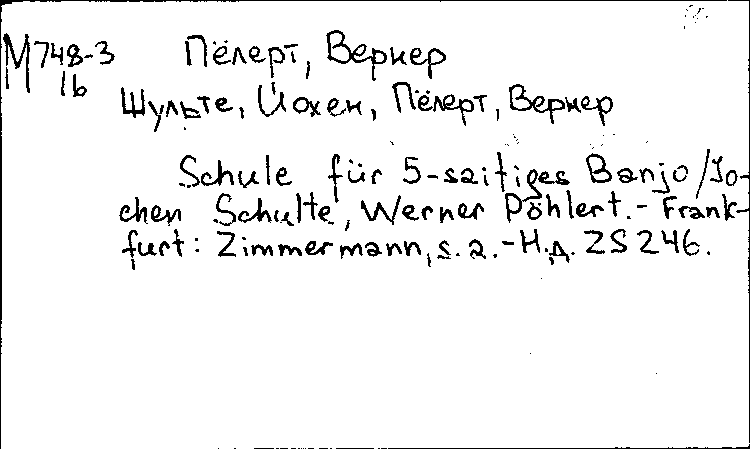 М748-3 Пёлерт, Вернер
16
Шульте, Йохен, Пёлерт, Вернер
Schule für 5-saitiges Banjo/Jo-
chen Schulte, Werner Pöhlert.-Frank-
furt: Zimmermann, s. a.-Н.д. ZS 246.